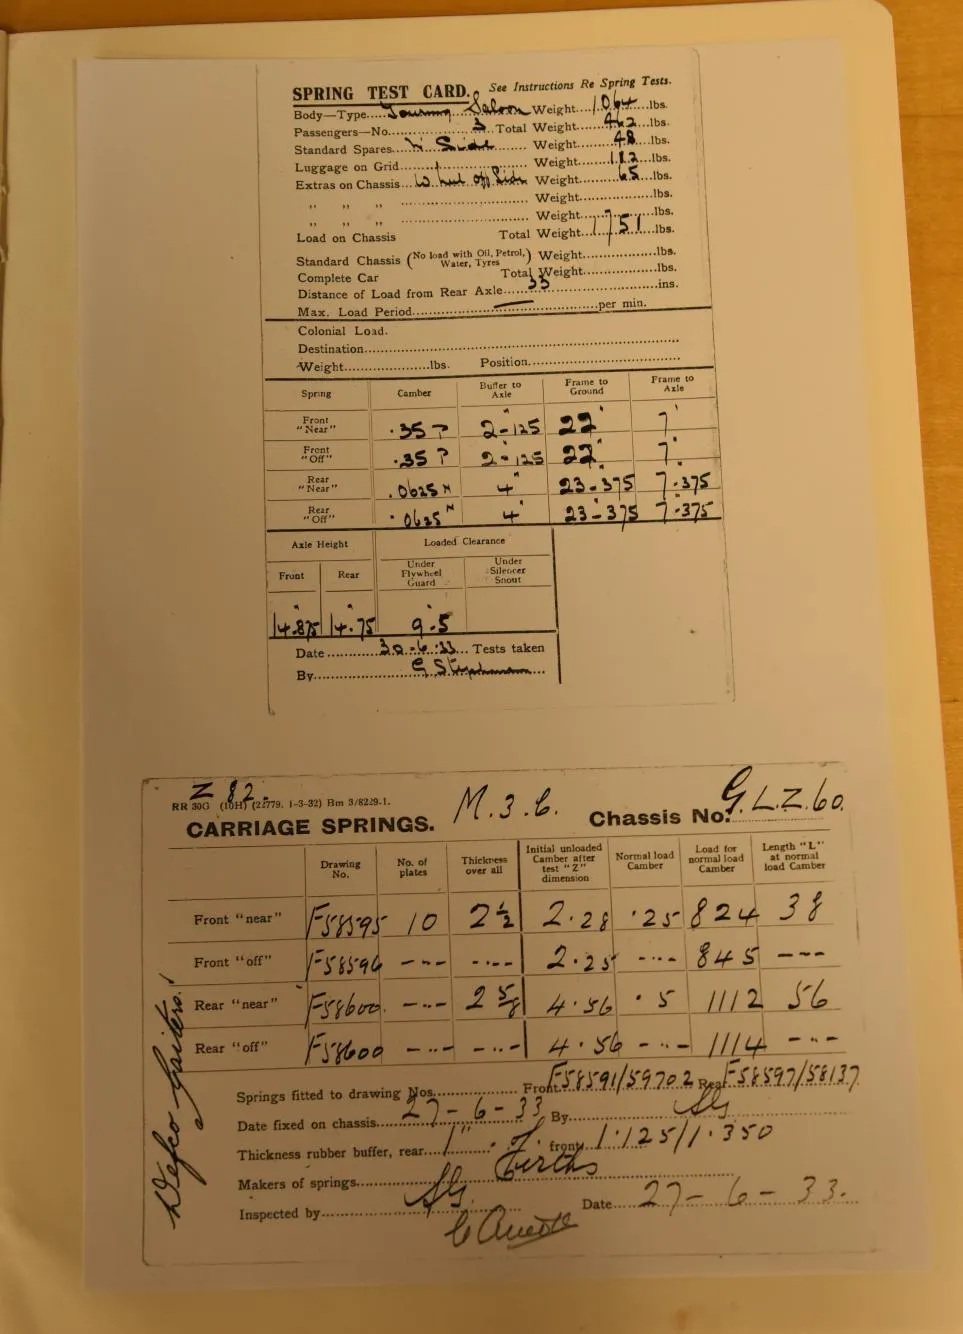 SPRING TEST CARD. See Instructions Re Spring Tests.
Body—Type.....Touring Saloon Weight....1,064...lbs.
Passengers—No..............3. Total Weight.....462...lbs.
Standard Spares...N. Side........ Weight......48...lbs.
Luggage on Grid........................ Weight.....112...lbs.
Extras on Chassis...Wheel Off Side Weight......65...lbs.
,, ,, ,, .......................... Weight..................lbs.
,, ,, ,, .......................... Weight..................lbs.
Load on Chassis Total Weight....1,751...lbs.
Standard Chassis (No load with Oil, Petrol, Water, Tyres) Weight..................lbs.
Complete Car Total Weight..................lbs.
Distance of Load from Rear Axle.....33..........................ins.
Max. Load Period.................—................per min.
Colonial Load.
Destination................................................................
Weight....................lbs. Position................................
Spring Camber Buffer to Axle Frame to Ground Frame to Axle
Front "Near" .35 ? 2-125" 22" 7"
Front "Off" .35 ? 2-125" 22" 7"
Rear "Near" .0625 N 4" 23-375" 7.375"
Rear "Off" .0625 N 4" 23-375" 7.375"
Axle Height Loaded Clearance
Front Rear Under Flywheel Guard Under Silencer Snout
14.875" 14.75" 9.5"
Date............30-6-33... Tests taken
By......................G Stephenson....
Z 82.
RR 30G (10H) (22779. 1-3-32) Bm 3/8229-1.
CARRIAGE SPRINGS. M.3.6. Chassis No: G.L.Z.60.
Drawing No. No. of plates Thickness over all Initial unloaded Camber after test "Z" dimension Normal load Camber Load for normal load Camber Length "L" at normal load Camber
Front "near" F58595 10 2½ 2.28 .25 824 38
Front "off" F58596 -..- -..- 2.25 -..- 845 -..-
Rear "near" F58600 -..- 2⅝ 4.56 .5 1112 56
Rear "off" F58600 -..- -..- 4.56 -..- 1114 -..-
Springs fitted to drawing Nos................ Front F58591/59702 Rear F58597/58137
Date fixed on chassis....27-6-33 By................
Thickness rubber buffer, rear....1"......... front 1.125/1.350
Makers of springs.................... Firths
Inspected by.................... Date....27-6-33.
Wefco Gaiters